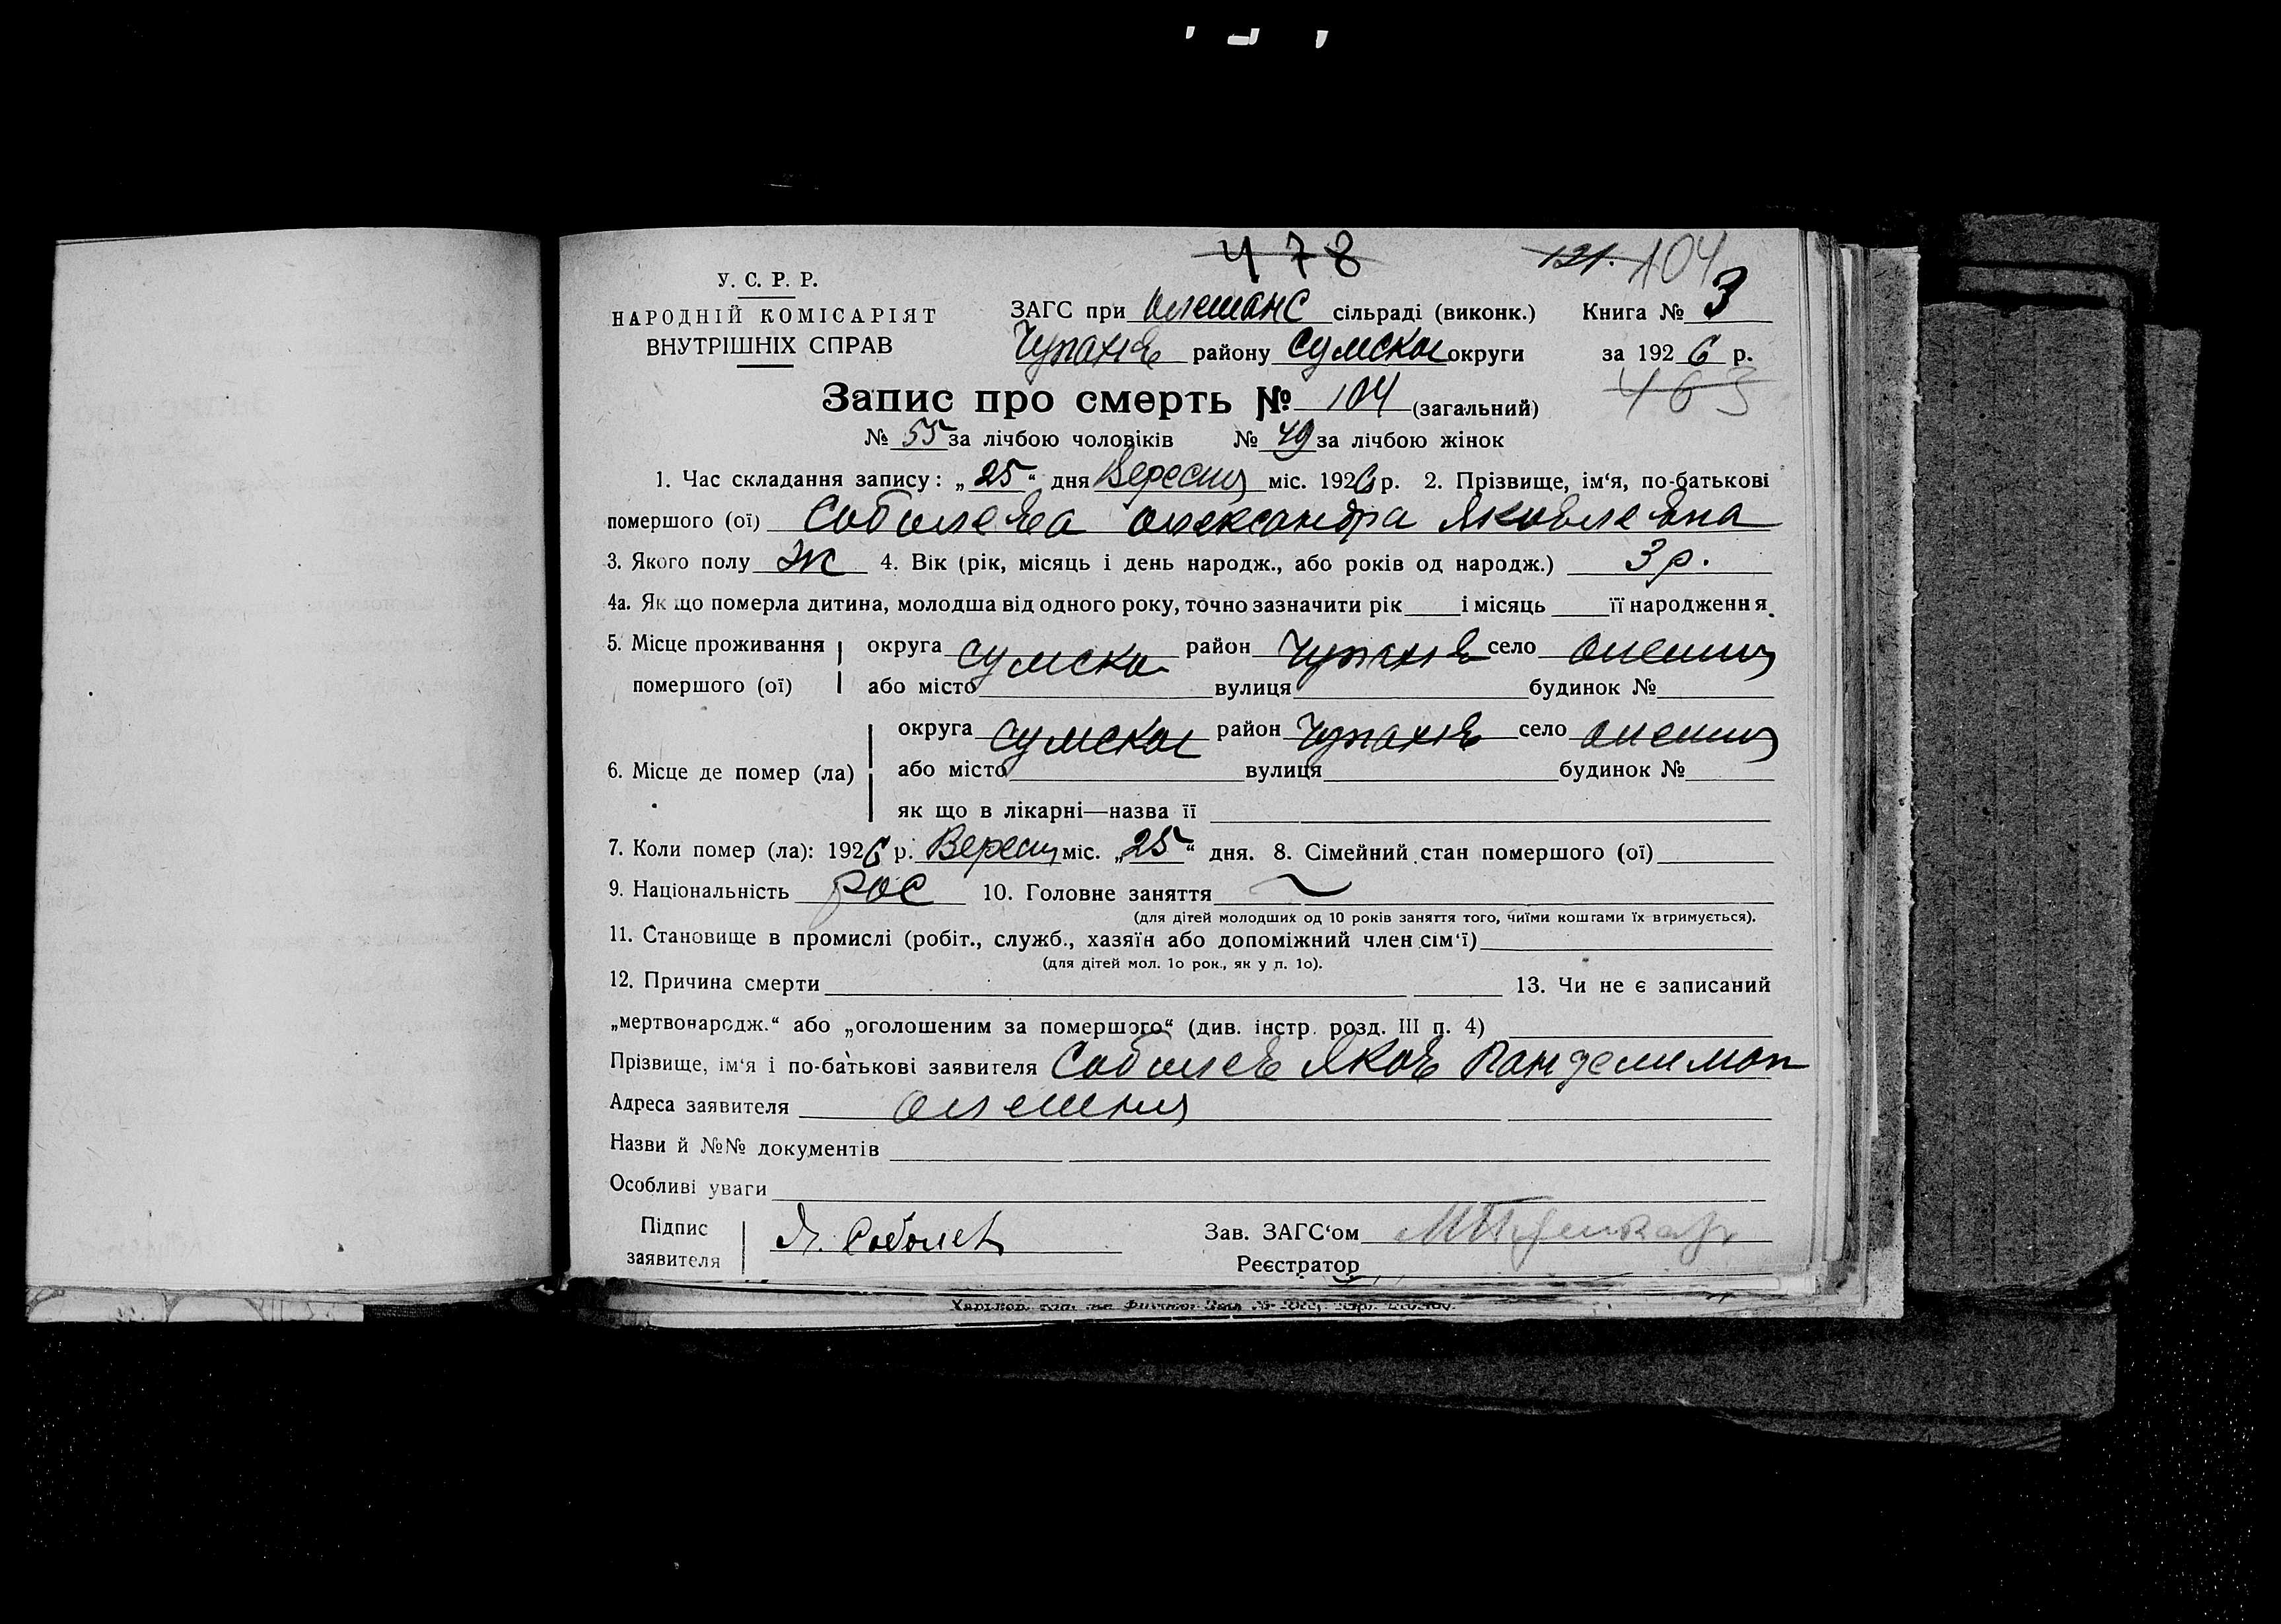 478
121. 104
У. С. Р. Р.
НАРОДНІЙ КОМІСАРІЯТ
ВНУТРІШНІХ СПРАВ
ЗАГС при Олешанс сільраді (виконк.) Книга № 3
Чупахів району Сумской округи за 1926 р.
463
Запис про смерть № 104 (загальний)
№ 55 за лічбою чоловіків № 49 за лічбою жінок
1. Час складання запису: „25“ дня Вересня міс. 1926 р. 2. Прізвище, ім‘я, по-батькові
помершого (ої) Соболева Олександра Яковлевна
3. Якого полу Ж 4. Вік (рік, місяць і день народж., або років од народж.) 3 р.
4а. Як що померла дитина, молодша від одного року, точно зазначити рік і місяць її народження.
5. Місце проживання помершого (ої) округа Сумско район Чупахів село Олешня
або місто вулиця будинок №
6. Місце де помер (ла) округа Сумской район Чупахів село Олешня
або місто вулиця будинок №
як що в лікарні—назва її
7. Коли помер (ла): 1926 р. Вересня міс. „25“ дня. 8. Сімейний стан помершого (ої)
9. Національність рос 10. Головне заняття
(для дітей молодших од 10 років заняття того, чиїми коштами їх втримується).
11. Становище в промислі (робіт., служб., хазяїн або допоміжний член сім‘ї)
(для дітей мол. 1о рок., як у п. 1о).
12. Причина смерти 13. Чи не є записаний
„мертвонародж.“ або „оголошеним за помершого“ (див. інстр. розд. III п. 4)
Прізвище, ім‘я і по-батькові заявителя Соболев Яков Панделимон
Адреса заявителя Олешня
Назви й №№ документів
Особливі уваги
Підпис заявителя Я. Соболев Зав. ЗАГС‘ом
Реєстратор